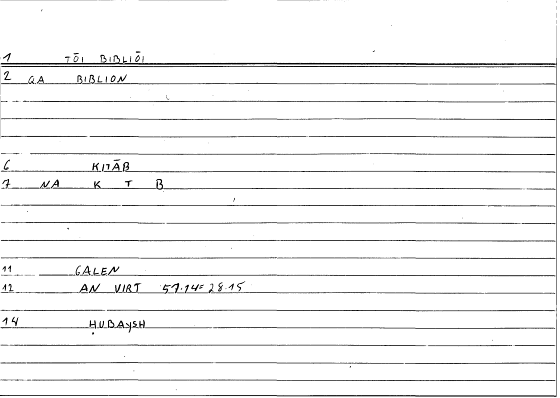 1 TŌI BIBLIŌI
2 QA BIBLION
6 KITĀB
7 NA K T B
11 GALEN
12 AN VIRT 57.14 = 28.15
14 ḤUBAYSH